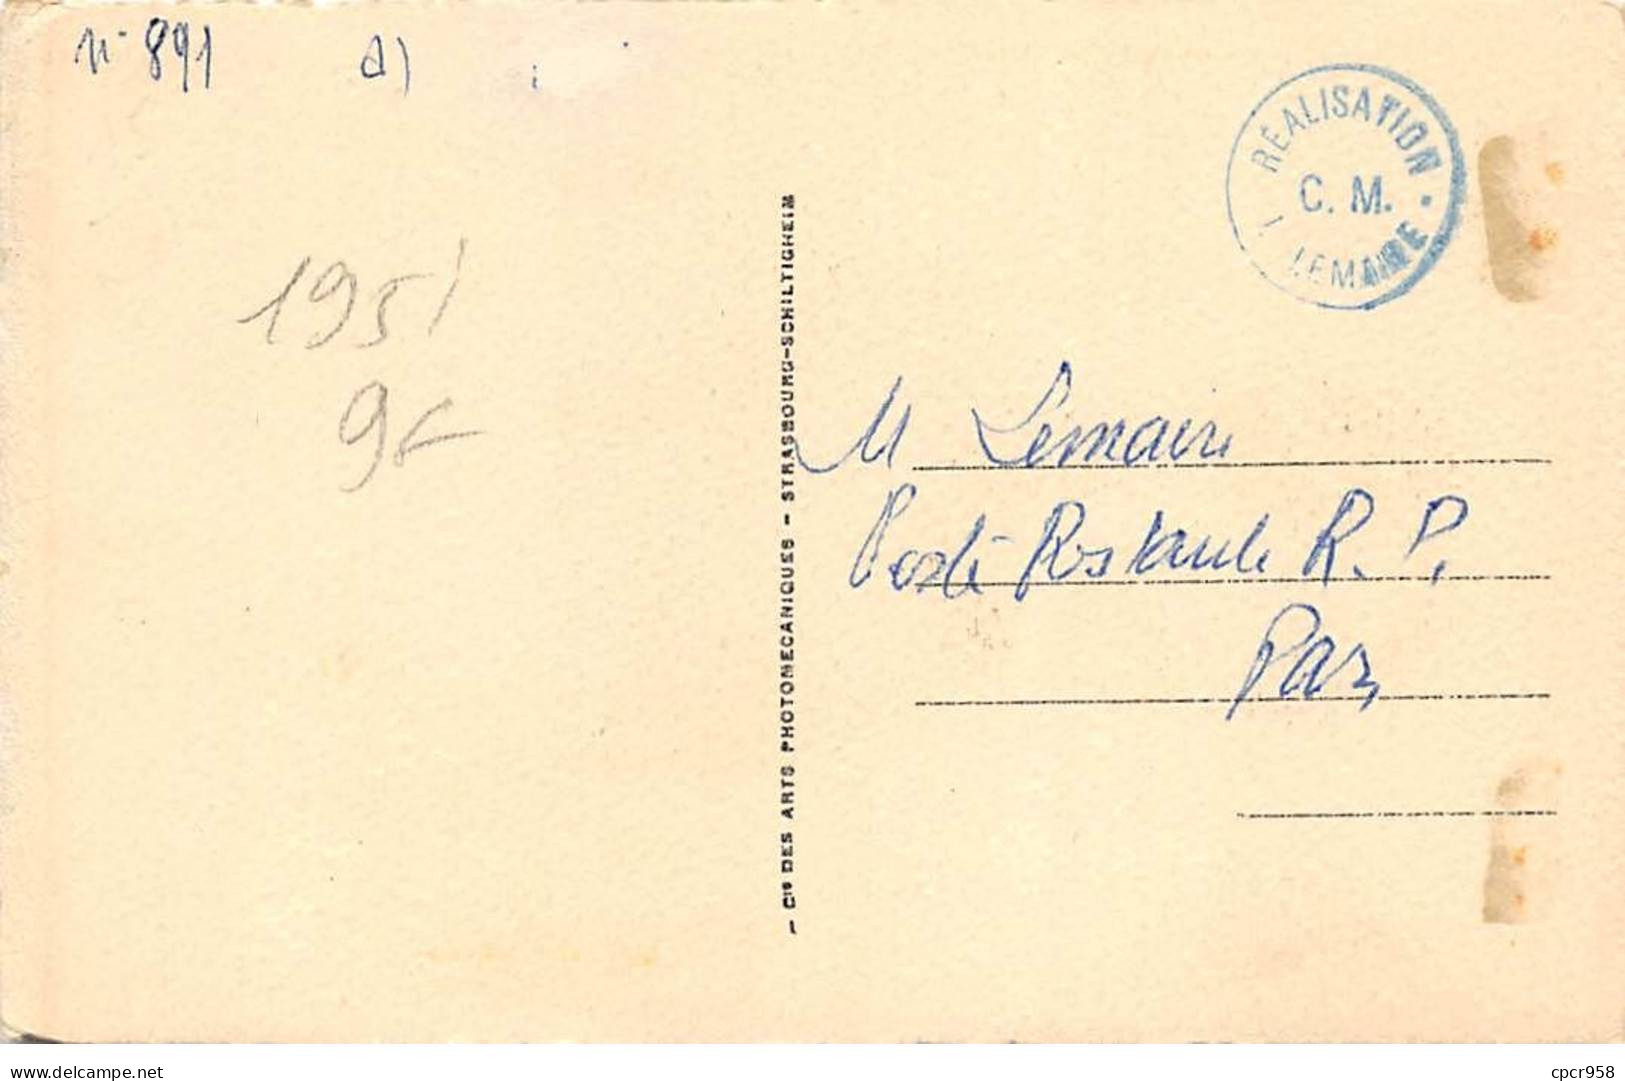 n° 891 a)
RÉALISATION
C. M.
LEMAIRE
1951
9F
— Cie DES ARTS PHOTOMECANIQUES - STRASBOURG-SCHILTIGHEIM
M Lemaire
Poste Restante R. P.
Paris
www.delcampe.net
cpcr958